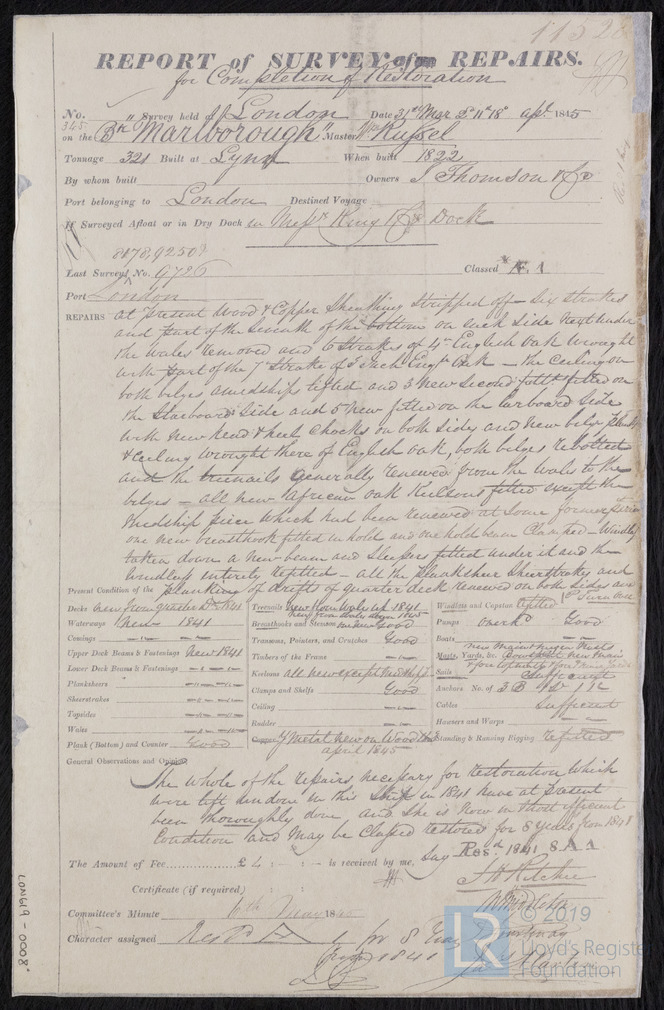 11528
REPORT of SURVEY for REPAIRS.
for Completion of Restoration
No. 345 Survey held at London Date 31st Mar 2d 11th 18th apl. 1845
on the Bk "Marlborough" Master Wm Russel
Tonnage 321 Built at Lynn When built 1822
By whom built Owners J Thomson & Co
Port belonging to London Destined Voyage
If Surveyed Afloat or in Dry Dock in Messrs King & Co Dock
8173,9250
Last Survey No. 9736 Classed A 1
Port London
REPAIRS at present Wood & Copper Sheathing Stripped off – Six strakes
and part of the of the bottom on each Side next under
the Wales removed and 6 Strakes of 4 In English Oak wrought
with part of the 7th Strake of 3 Inch Engh Oak – the Ceiling on
both belges amidships lifted and 3 new second fitted on
the Starboard Side and 5 new fitted on the larboard Side
with new head & heel Chocks on both Sides and new belge planks
& Ceiling wrought there of English oak, both belges rebolted
and the treenails generally renewed from the Wales to the
belges – all new African oak Keelsons fitted except the
Midship piece which had been renewed at some former period
one new breasthook fitted in hold and one hold beam Clamped – Windlass
taken down a new beam and Sleepers fitted under it and the
windlass entirely refitted – all the planksheer Sheerstrakes and
Present Condition of the planking of drifts of quarter deck renewed on both sides
Decks new from quarter Dk 1841 Treenails new from Wales up 1841 Windlass and Capstan refitted
new from Wales down 1845
Waterways New 1841 Breasthooks and Stemson Good Pumps overhd Good
Comings — — Transoms, Pointers, and Crutches Good Boats — —
Upper Deck Beams & Fastenings New 1841 Timbers of the Frame — — Masts, Yards, &c.
Lower Deck Beams & Fastenings — — Keelsons all new except Midship Sails Sufficient
Planksheers — — Clamps and Shelfs Good Anchors No. of 3 B 1 St 1 K
Sheerstrakes — — Ceiling — — Cables Sufficient
Topsides — — Rudder — — Hawsers and Warps — —
Wales — — Copper Y Metal new on Wood Standing & Running Rigging refitted
Plank (Bottom) and Counter Good April 1845
General Observations and Opinion
The whole of the repairs necessary for restoration which
were left undone in this Ship in 1841 have at present
been thoroughly done and She is now in Most efficient
Condition and may be Classed restored for 8 years from 1841
say Resd 1841 8 A 1
The Amount of Fee £4 : - : - is received by me,
J H Ritchie
Certificate (if required) : :
Committee's Minute 16th May 1845
Character assigned Restd A 1 for 8 Years
from 1841
LON619-0008
© 2019
LR
Lloyd's Register
Foundation